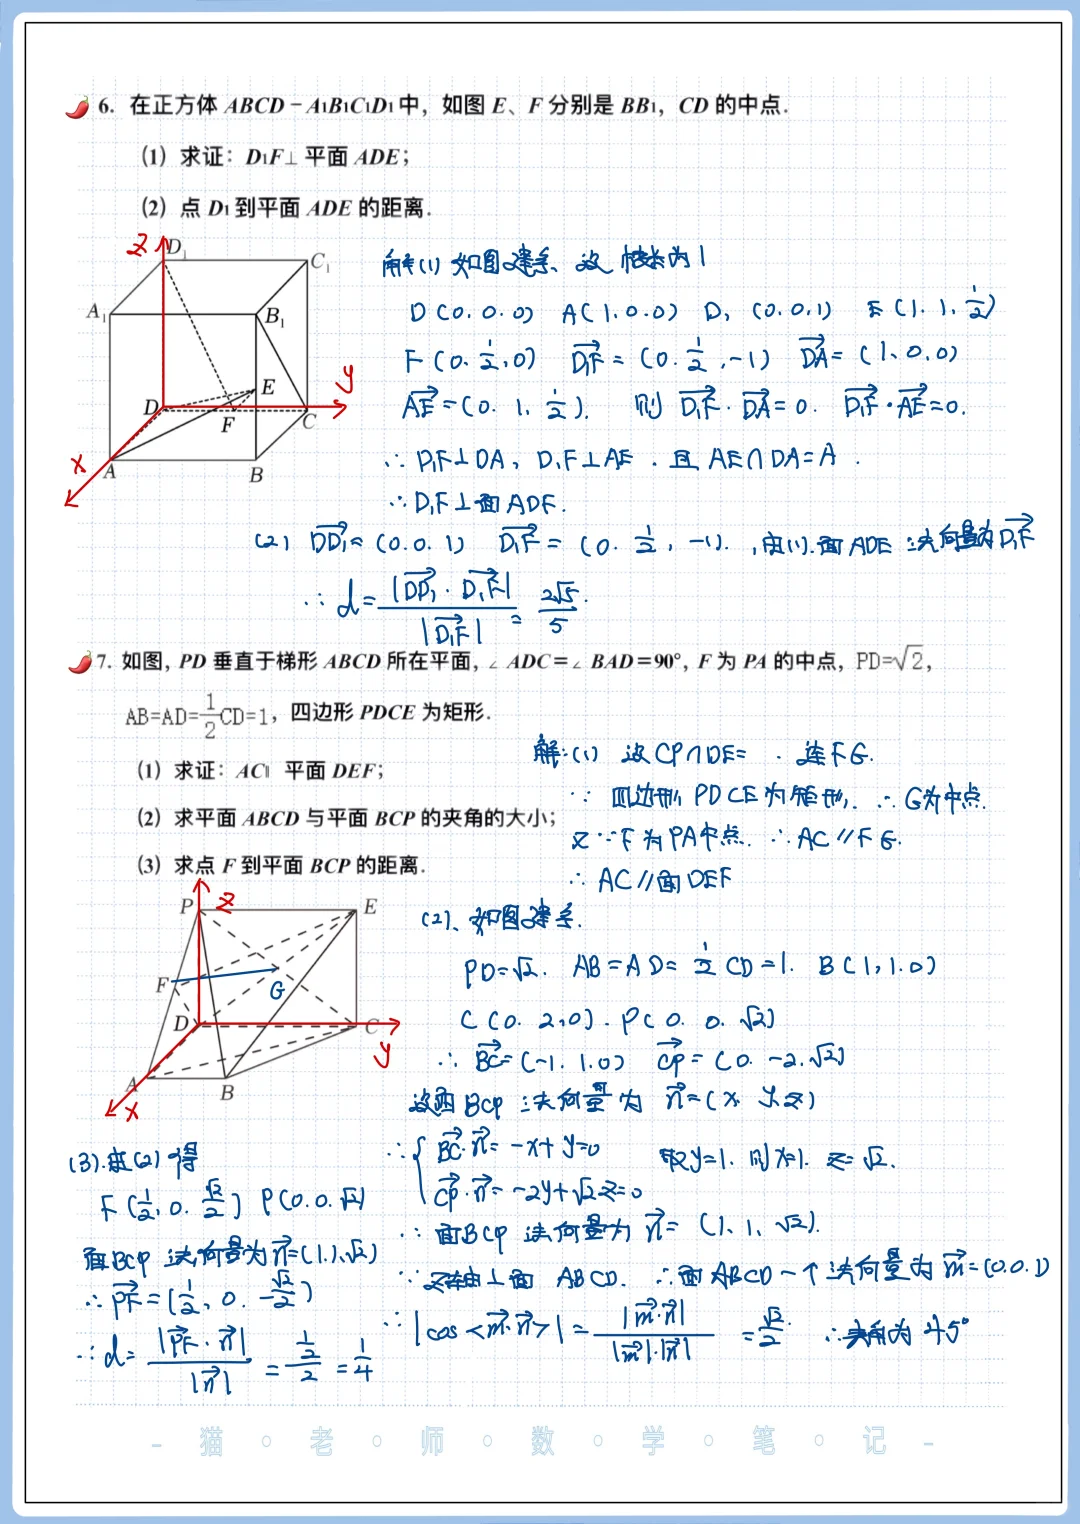 6. 在正方体 ABCD－A1B1C1D1中，如图 E、F 分别是 BB1，CD 的中点.
(1) 求证：D1F⊥ 平面 ADE；
(2) 点 D1 到平面 ADE 的距离.
z D1 C1 A1 B1 E y D F C x A B
解(1) 如图建系、设 棱长为1
D(0.0.0) A(1.0.0) D1 (0.0.1) E(1.1.1/2)
F(0.1/2,0) D1F=(0.1/2,-1) DA=(1.0.0)
AE=(0.1.1/2). 则 D1F·DA=0. D1F·AE=0.
∴ D1F⊥DA, D1F⊥AE. 且 AE∩DA=A.
∴ D1F⊥面 ADF.
(2) DD1=(0.0.1) D1F=(0.1/2,-1). ,由(1).面ADE 法向量为D1F
∴ d=|DD1·D1F|/|D1F|=2√5/5.
7. 如图，PD 垂直于梯形 ABCD 所在平面，∠ ADC＝∠ BAD＝90°，F 为 PA 的中点，PD=√2，
AB=AD=1/2CD=1，四边形 PDCE 为矩形.
(1) 求证：AC∥ 平面 DEF；
(2) 求平面 ABCD 与平面 BCP 的夹角的大小；
(3) 求点 F 到平面 BCP 的距离.
P z E F G D C y A B x
解:(1) 设 CP∩DE= . 连FG.
∵ 四边形 PDCE为矩形. ∴ G为中点.
又∵F为PA中点. ∴AC∥FG.
∴ AC∥面DEF
(2)、如图建系.
PD=√2. AB=AD=1/2CD=1. B(1,1.0)
C(0.2,0). P(0.0.√2)
∴ BC=(-1.1.0) CP=(0.-2.√2)
设面BCP 法向量为 n=(x.y.z)
∴{BC·n=-x+y=0
CP·n=-2y+√2z=0
取y=1. 则x=1. z=√2.
∴ 面BCP 法向量为 n=(1.1.√2).
∵ z轴⊥面 ABCD. ∴面ABCD一个法向量为m=(0.0.1)
∴|cos<m·n>|=|m·n|/|m|·|n|=√2/2. ∴夹角为45°
(3).由(2)得
F(1/2,0.√2/2) P(0.0.√2)
面BCP 法向量为n=(1.1.√2)
∴PF=(1/2,0.-√2/2)
∴d=|PF·n|/|n|=1/2/2=1/4
- 猫 · 老 · 师 · 数 · 学 · 笔 · 记 -